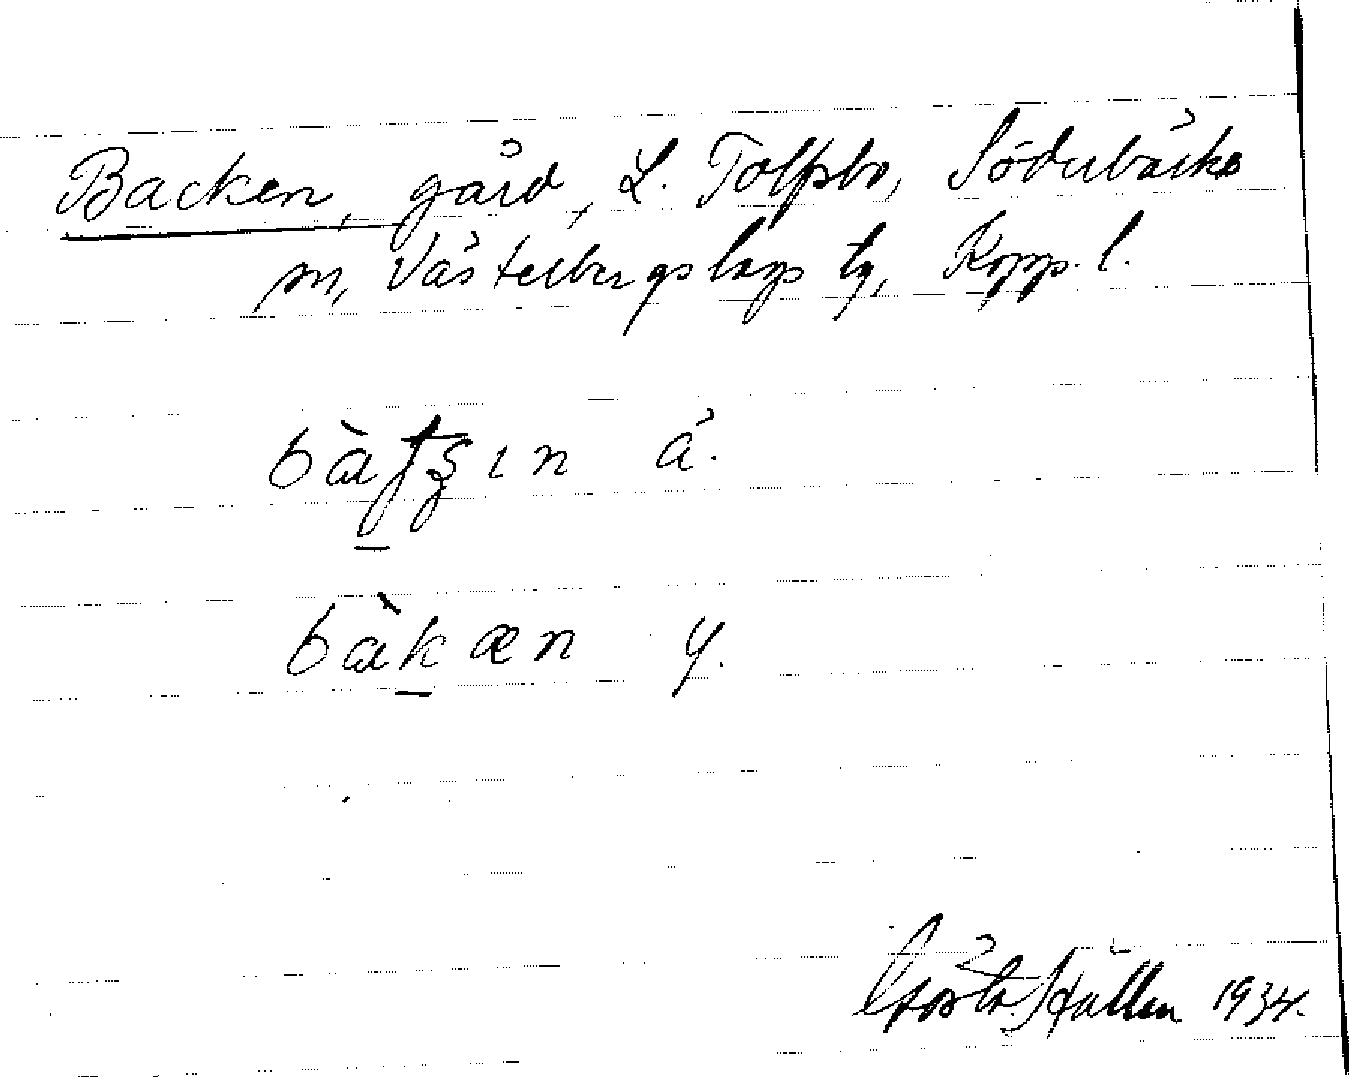 Backen, gård, L. Tolfsbo, Söderbärke
sn, Västerbergslags tg, Kopp. l.
bàtʂın ä.
bàkæn y.
Gösta Hällen 1934.